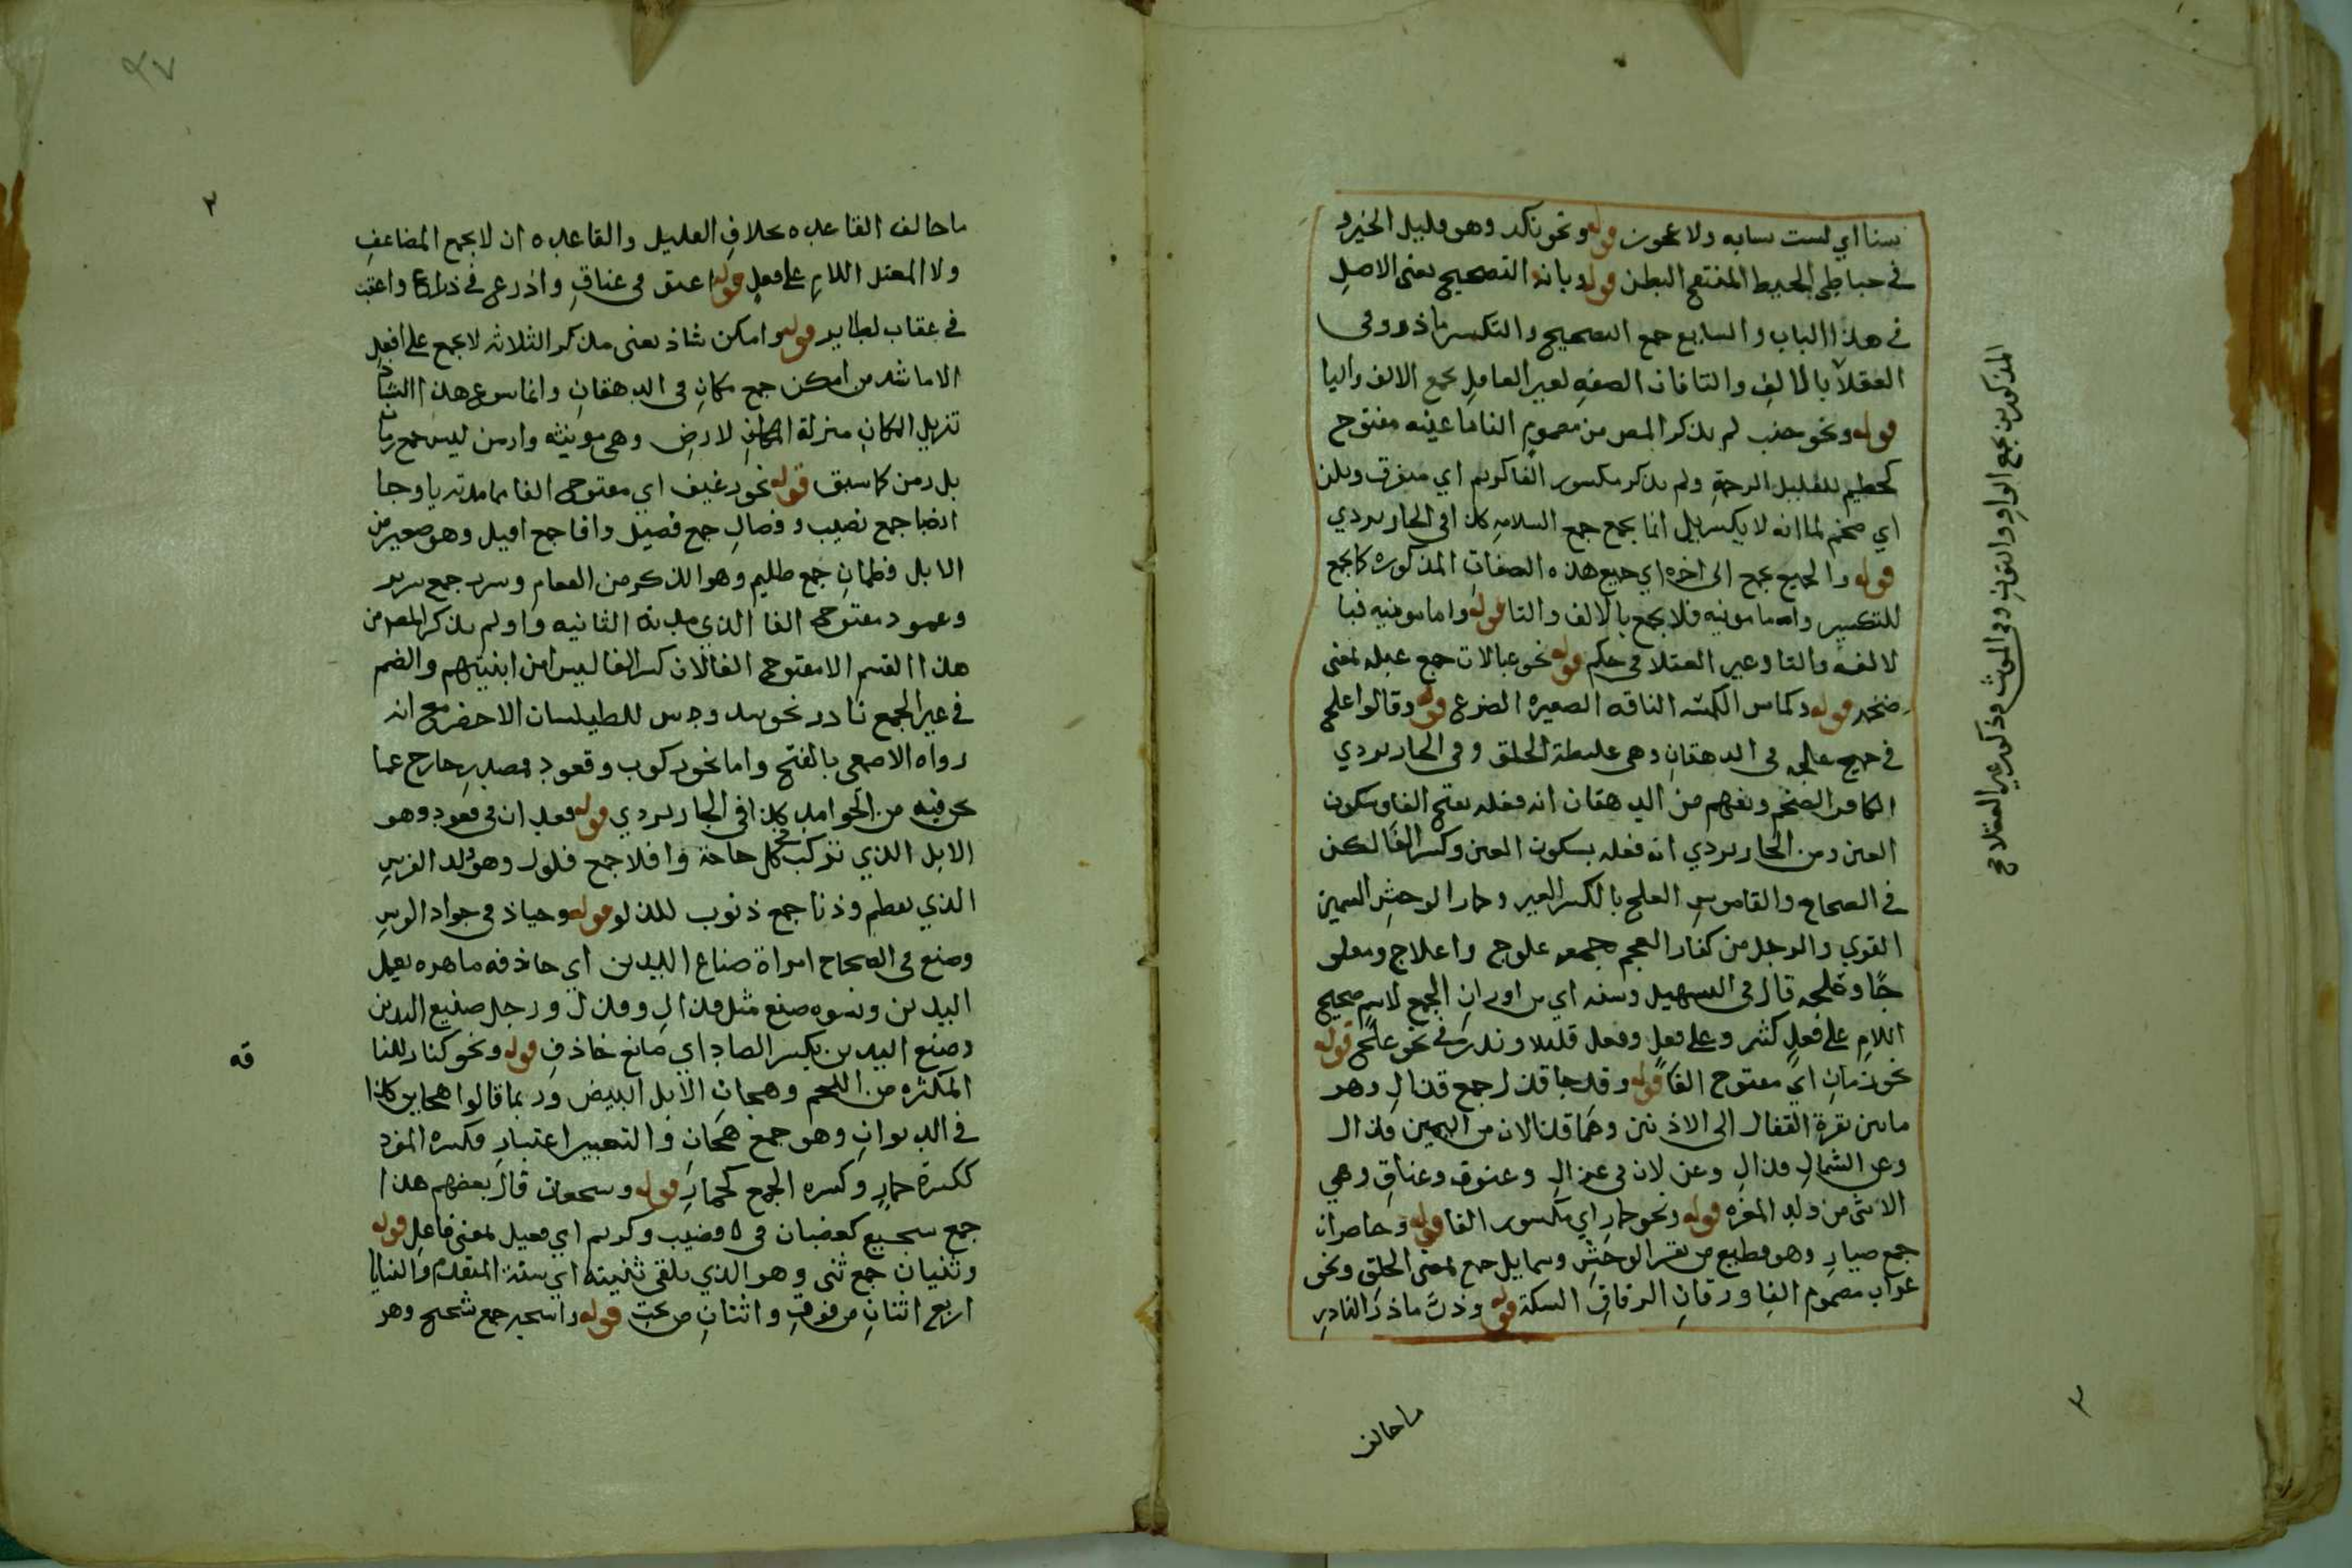 بسنا اي لست سابه ولا عون قوله ونحو نكد وهو قليل الخير و
في حباطى الحبط المنتفخ البطن قوله وبانه التصحيح يعنى الاصل
في هذا الباب والسابع جمع التصحيح والتكسير
العقلا بالالف والتا فان الصفه لغير العاقل بجمع الالف واليا
قوله ونحو جنب لم يذكر المص من مضموم الفا ما عينه مفتوح
كحطيم للقليل الرحمة ولم يذكر مكسور الفا كزيم اي متفرق وبلن
اي ضخم لما انه لا يكسر بل انما يجمع جمع السلامه كذا في الجاربردي
قوله والجميع يجمع الى اخره اي جميع هذه الصفات المذكوره كما يجمع
للتكسير واما مونثه فلا يجمع بالالف والتا قوله واما مونثه فبا
لالف والتا وغير العقلا في حكم قوله نحو عبالات جمع عبله بمعنى
ضخمه قوله وكماش الكمشه الناقه الصغيره الضرع قوله وقالوا علج
في جمع علجه في الدهقان وهى غليظة الخلق وفي الجاربردي
الكافر الضخم ويفهم من الدهقان انه فعله بفتح الفا وسكون
العين ومن الجاربردي انه فعله بسكون العين وكسر الفا لكن
في الصحاح والقاموس العلج بالكسر العير وحمار الوحش السمين
القوي والرجل من كفار العجم جمعه علوج واعلاج ومعلو
جا وعلجه قال في التسهيل وسنه اي من اوزان الجمع لاسم صحيح
اللام على فعل كثير وعلى فعل وفعل قليلا وندر في نحو علج قوله
نحو زمان اي مفتوح الفا قوله وقد جا قذل جمع قذال وهو
مابين نقرة القفال الى الاذنين وهما قذالان من اليمين قذال
وعن الشمال قذال وغزلان في غزال وعنوق وعناق وهي
الانثى من ولد المعزه قوله ونحو حمار اي مكسور الفا قوله وحاصران
جمع صيار وهو قطيع من بقر الوحش وشمايل جمع بمعنى الخلق ونحو
غراب مضموم الفا وزقان الزقاق السكة قوله وذب ماذر النادر
المذكورين يجمع الواو والنون وفي المونث وذكور غير العقلا في
ماخالف
ماخالف القاعده بخلاف القليل والقاعده ان لا يجمع المضاعف
ولا المعتل اللام على فعل قوله اعنق في عناق واذرع في ذراع واعقب
في عقاب لطاير قوله وامكن شاذ يعنى مذكر الثلاثه لا يجمع على افعل
الا ما شذ من امكن جمع مكان في الدهقان وانما سوغ هذا الشاذ
تنزيل المكان منزلة لارض وهى مونثه وازمن ليس جمع زمان
بل زمن كما سبق قوله نحو رغيف اي مفتوح الفا مما مدته يا وجا
انصبا جمع نصيب وفصال جمع فصيل وافا جمع افيل وهو صغير من
الابل وظلمان جمع ظليم وهو الذكر من النعام وسرر جمع سرير
وعمود مفتوح الفا الذي مدته الثانيه واو لم يذكر المص من
هذا القسم الا مفتوح الفا لان كسر الفا ليس من ابنيتهم والضم
في غير الجمع نادر نحو سدوس للطيلسان الاخضر مع انه
رواه الاصمعى بالفتح واما نحو ركوب وقعود فمصدر خارج عما
نحن فيه من الجوامد كذا في الجاربردي قوله فعدان في قعود وهو
الابل الذي تركب في كل حاجة وافلا جمع فلول وهو ولد الفرس
الذي يعظم وذنا جمع ذنوب للدلو قوله وجياذ في جواد الوس
وصنع في الصحاح امراة صناع اليدين اي حاذقه ماهره بعمل
اليدين ونسوه صنع مثل قذال وقذل ورجل صنيع اليدين
وصنع اليدين بكسر الصاد اي صانع حاذق قوله ونحو كناز للنا
قه
المكثره من اللحم وهجان الابل البيض وربما قالوا هجاين كذا
في الديوان وهو جمع هجان والتعبير اعتبار فكسره المفرد
ككسرة حمار وكسره الجمع كحمار قوله وشجعان قال بعضهم هذا
جمع شجيع كقضبان في قضيب وكريم اي فعيل بمعنى فاعل قوله
وثنيان جمع ثنى وهو الذي يلقى ثنيته اي سنة المتقدم والثنايا
اربع اثنان من فوق واثنان من تحت قوله واشحه جمع شحيح وهو